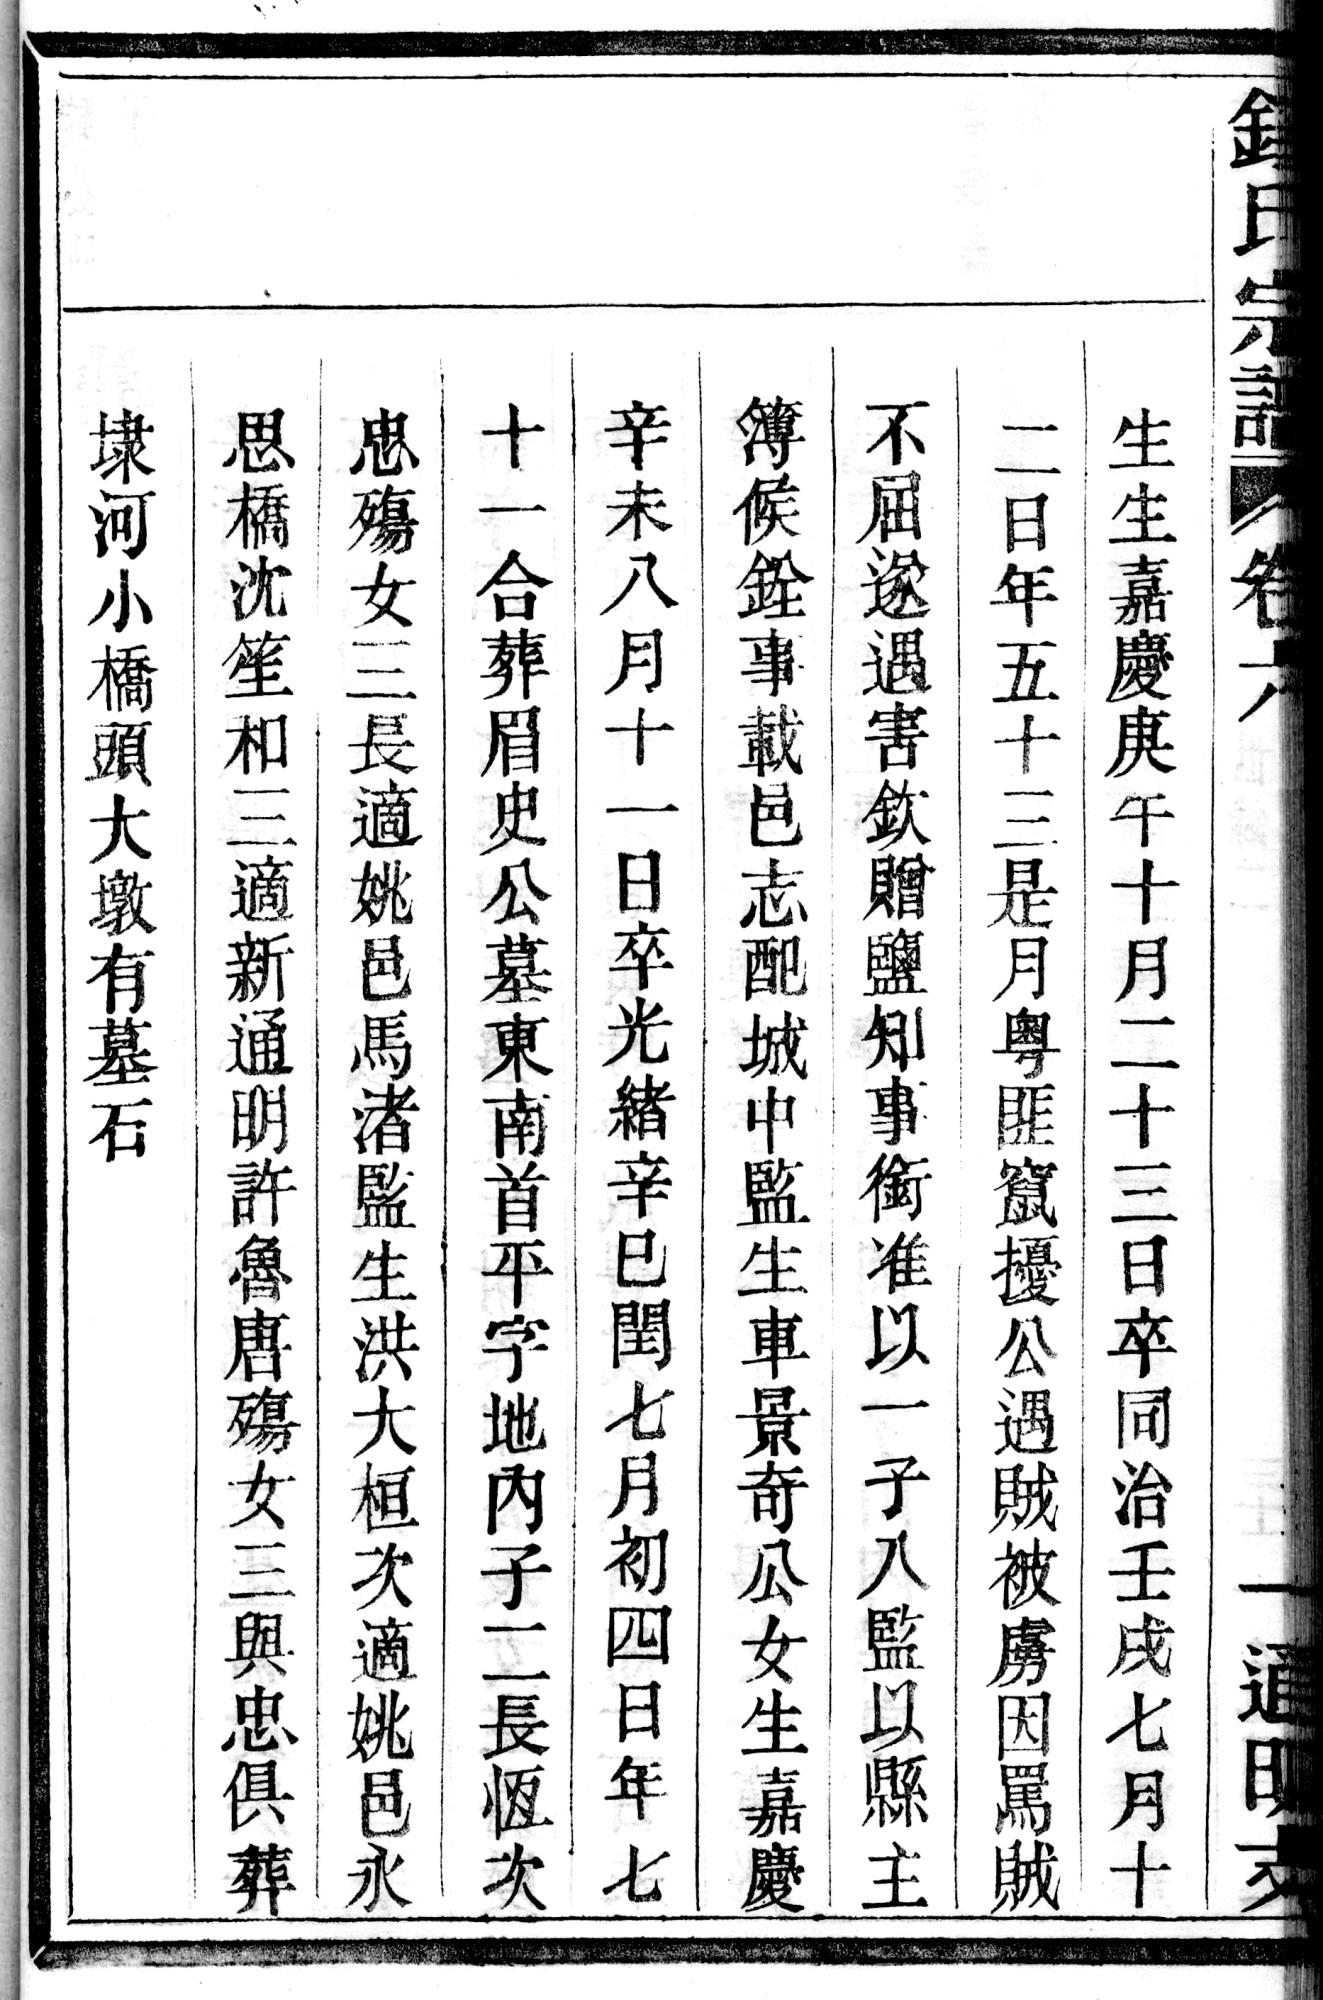 氏宗譜 卷六 一 通明支
生生嘉慶庚午十月二十三日卒同治壬戌七月十
二日年五十三是月粵匪竄擾公遇賊被虜因罵賊
不屈遂遇害欽贈鹽知事銜准以一子入監以縣主
簿候銓事載邑志配城中監生車景奇公女生嘉慶
辛未八月十一日卒光緒辛巳閏七月初四日年七
十一合葬眉史公墓東南首平字地內子二長恆次
忠殤女三長適姚邑馬渚監生洪大桓次適姚邑永
思橋沈笙和三適新通明許魯唐殤女三與忠俱葬
埭河小橋頭大墩有墓石